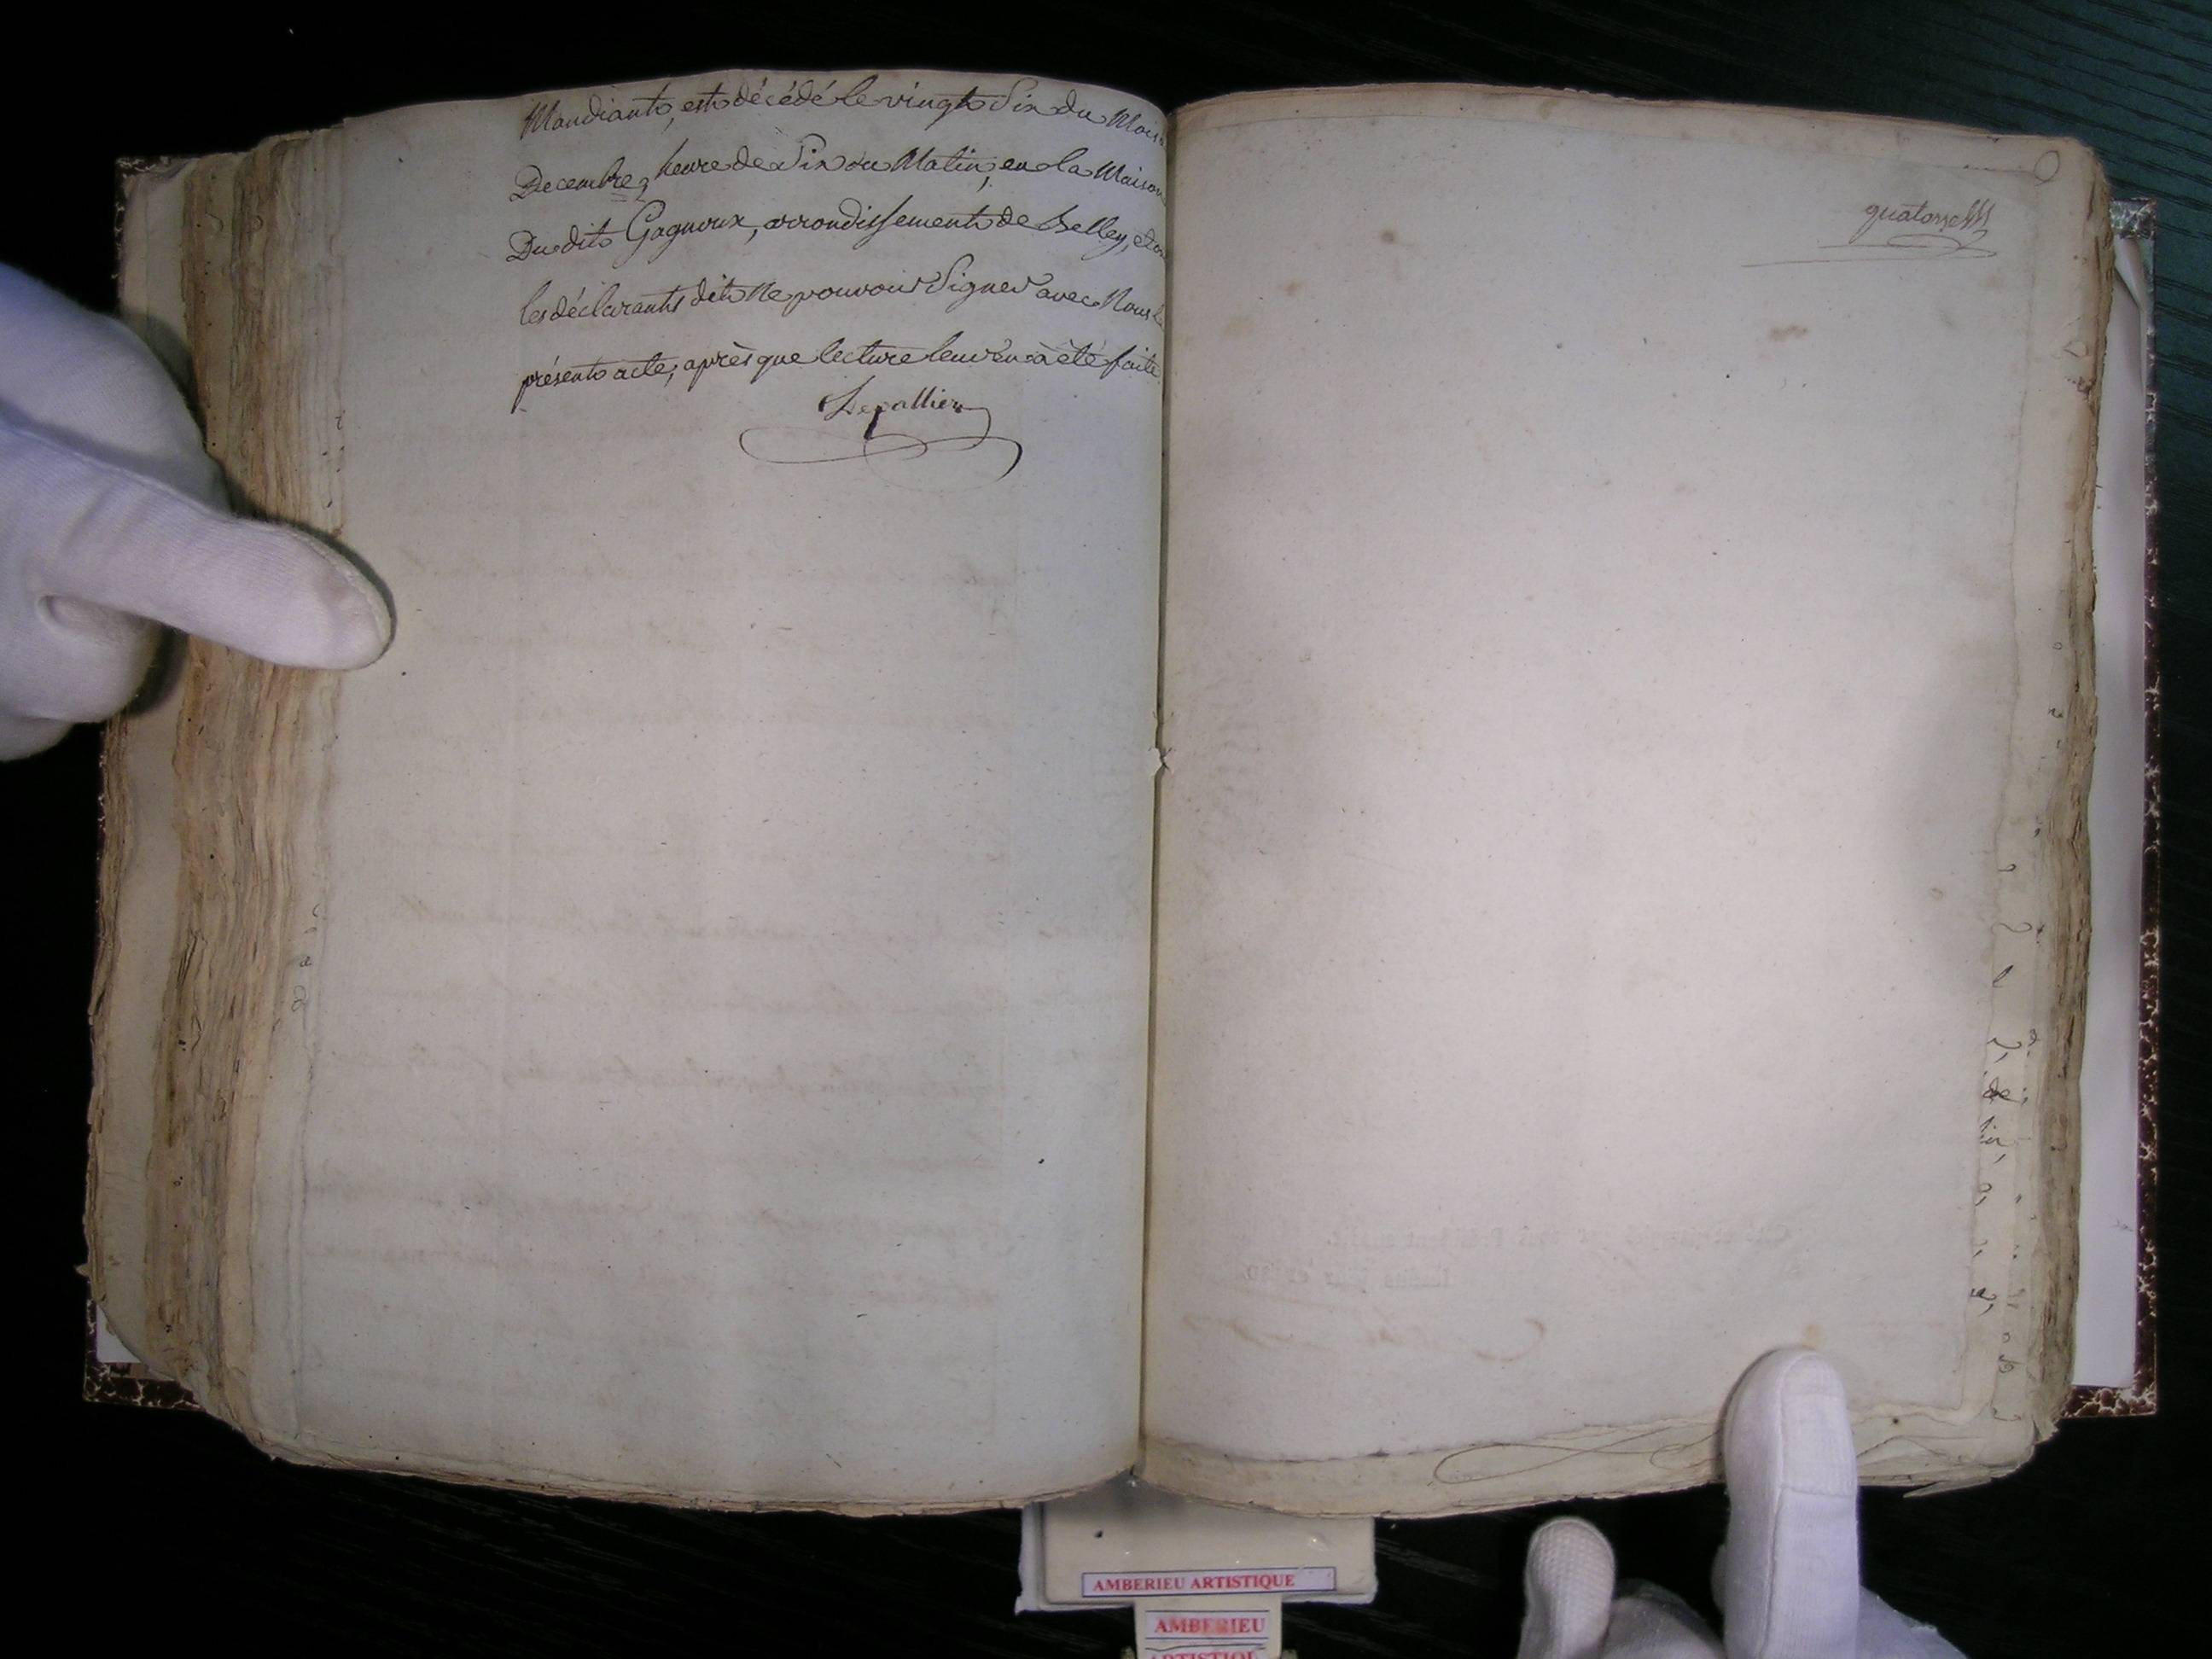 Mandiant, est décédé le vingt Six du Mois
Decembre, heure de Six du Matin, en la Maison
Du dit Gagneux, arrondissement de Belley, et
les déclarants dit Ne pouvoir Signer avec Nous le
présent acte, après que lecture leur en a été faite.
quatorze
AMBERIEU ARTISTIQUE
AMBERIEU
ARTISTIQUE